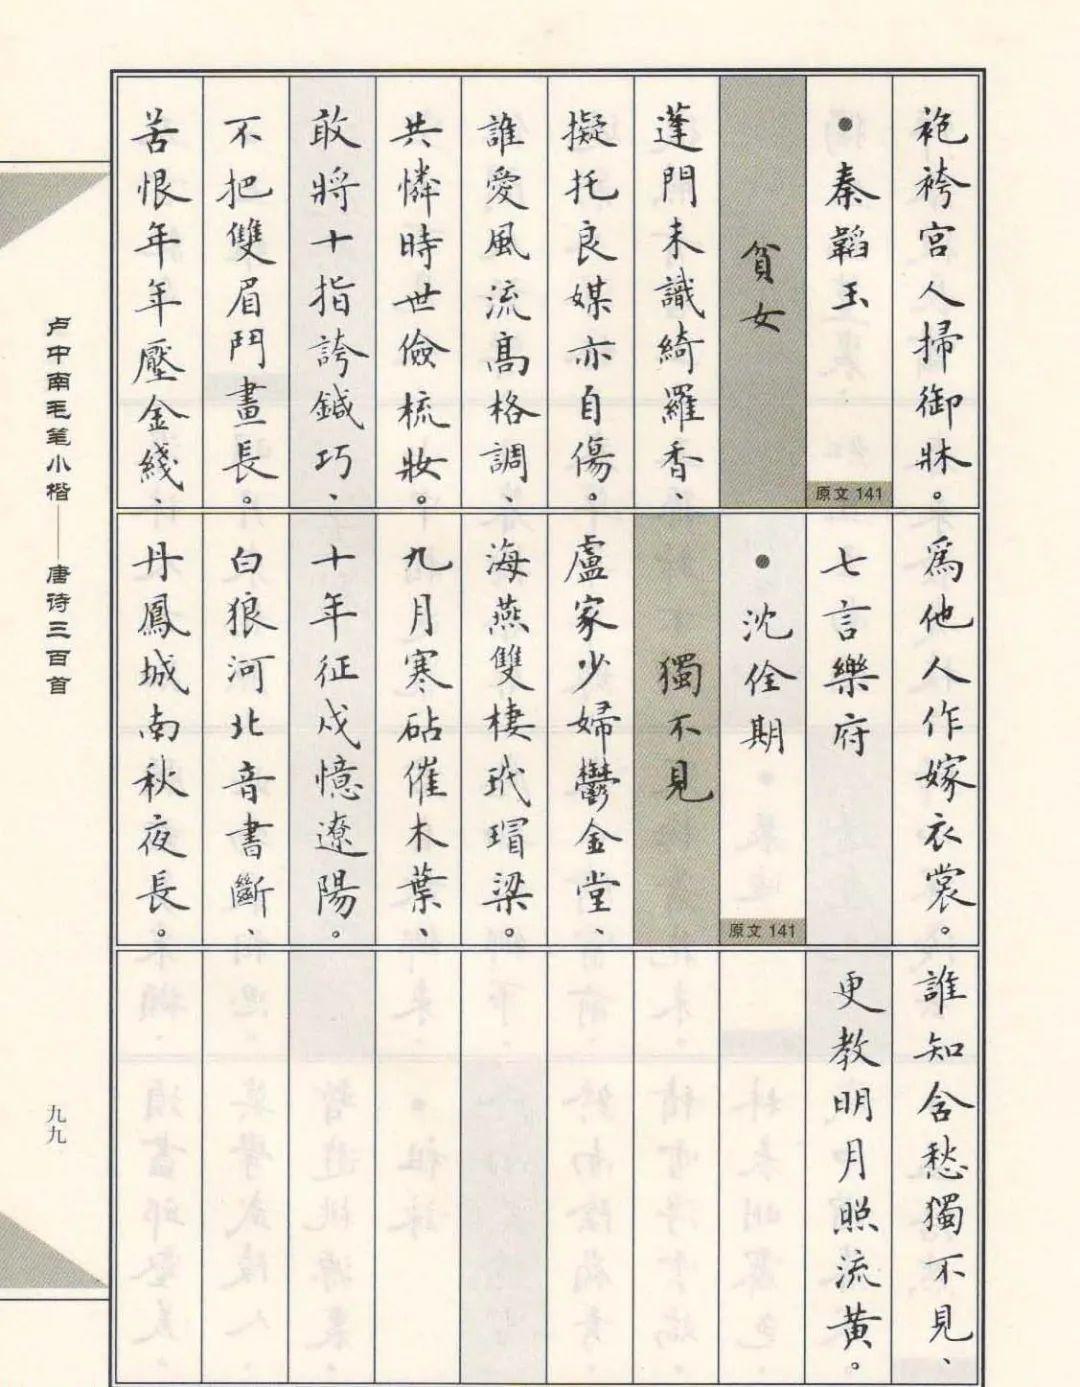 袍袴宮人掃御牀。
●秦韜玉
原文141
貧女
蓬門未識綺羅香、
擬托良媒亦自傷。
誰愛風流高格調、
共憐時世儉梳妝。
敢將十指誇鍼巧、
不把雙眉鬥畫長。
苦恨年年壓金綫、
爲他人作嫁衣裳。
七言樂府
●沈佺期
原文141
獨不見
盧家少婦鬱金堂、
海燕雙棲玳瑁梁。
九月寒砧催木葉、
十年征戍憶遼陽。
白狼河北音書斷、
丹鳳城南秋夜長。
誰知含愁獨不見、
更教明月照流黃。
卢中南毛笔小楷——唐诗三百首
九九